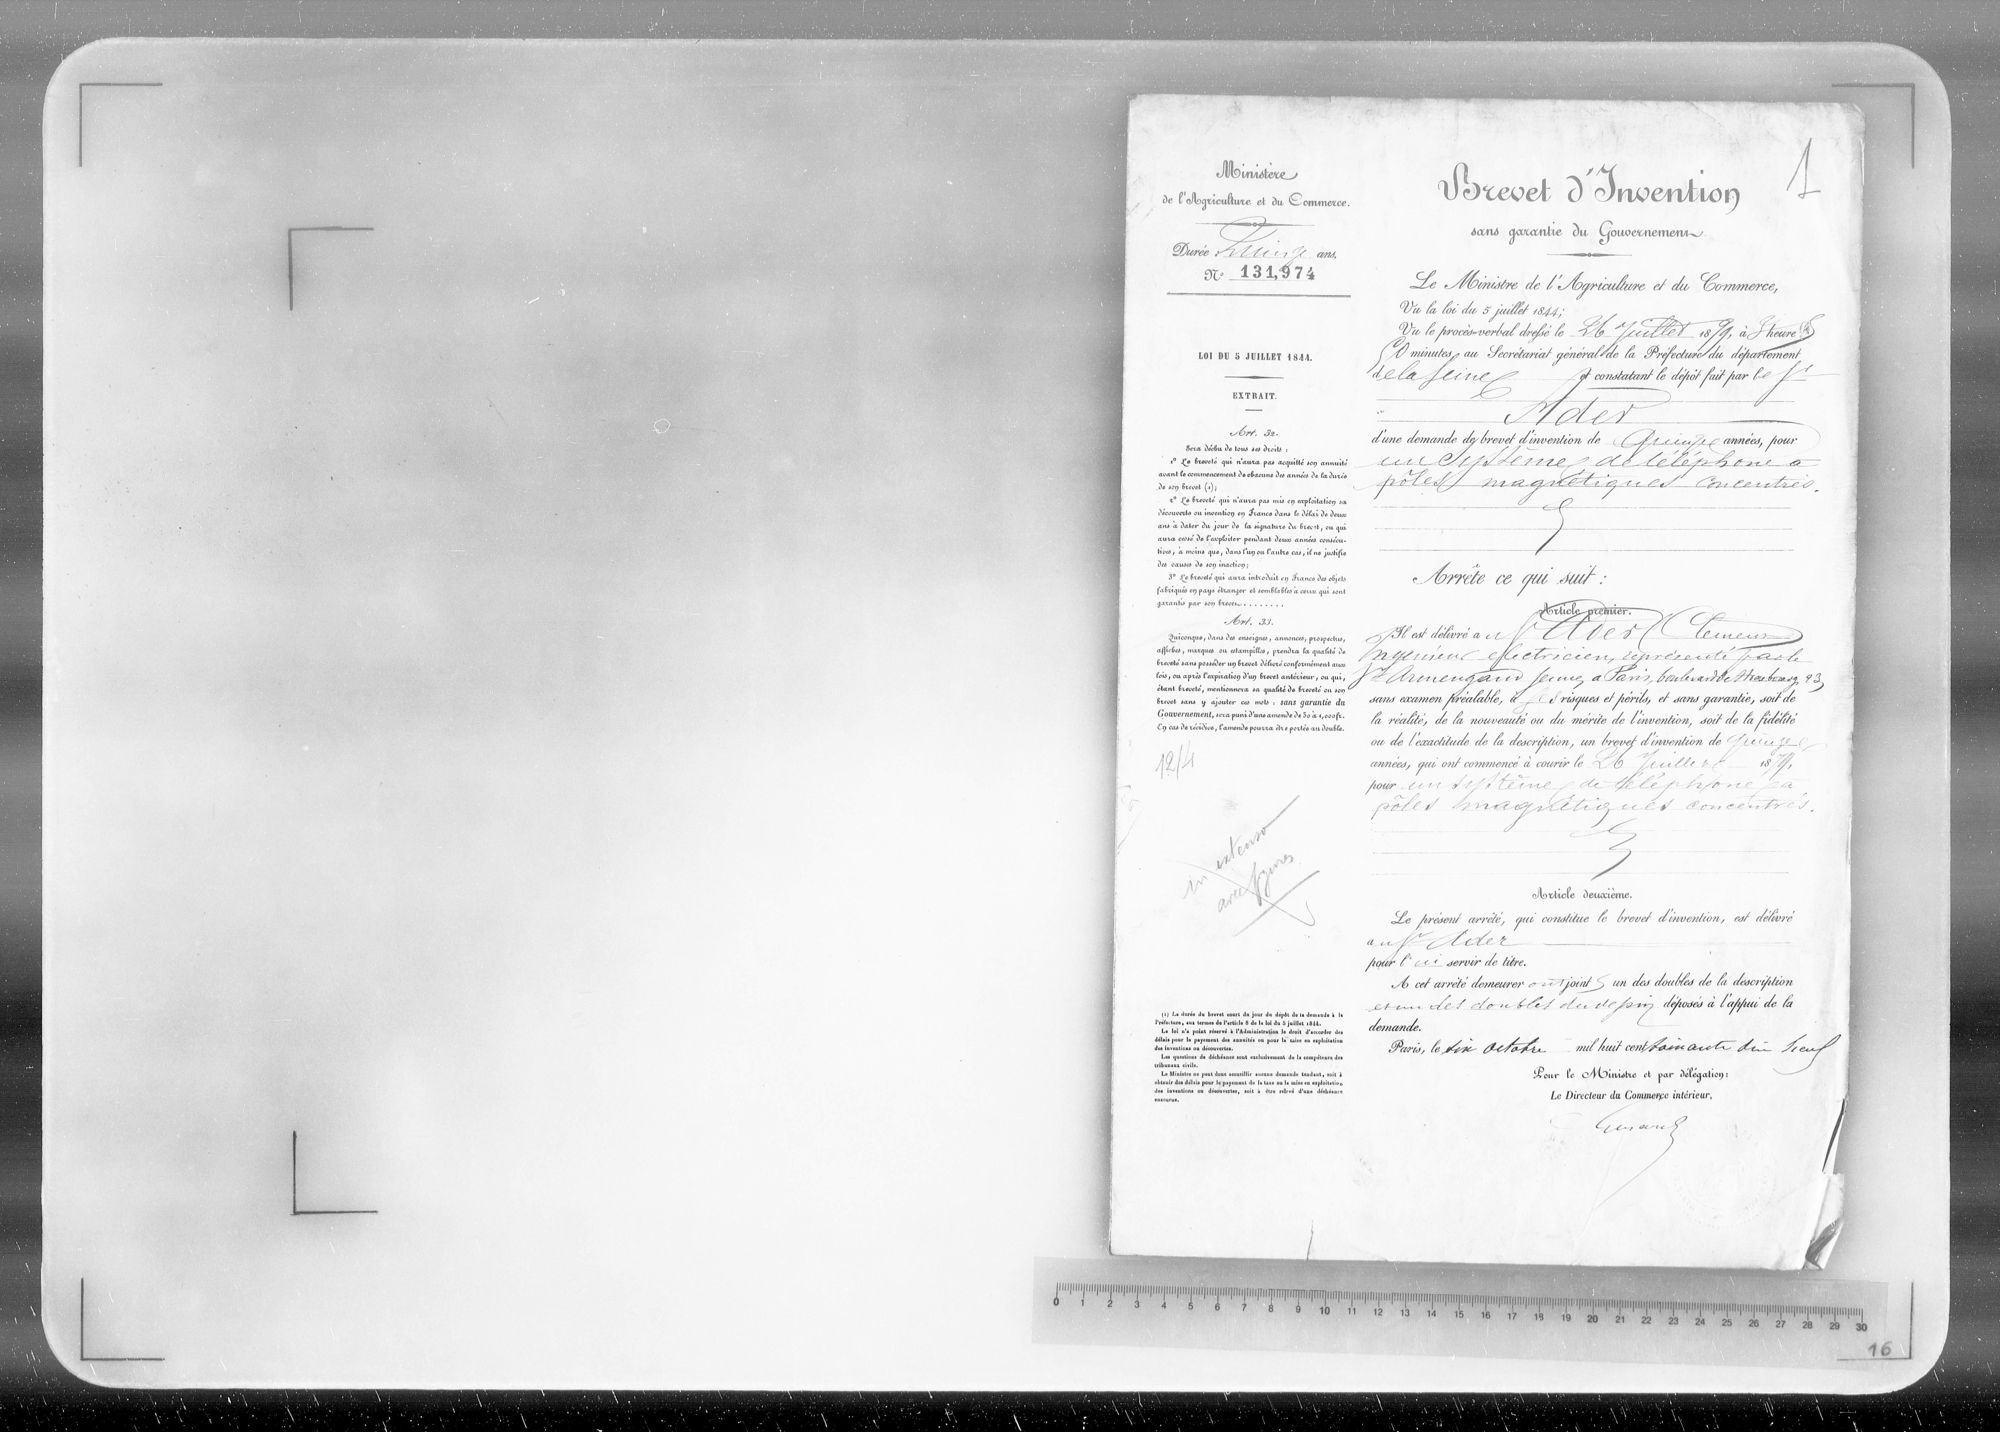 Ministère
de l'Agriculture et du Commerce.
Durée Quinze ans.
N° 131,974
LOI DU 5 JUILLET 1844.
EXTRAIT.
Art. 32.
Sera déchu de tous ses droits :
1° Le breveté qui n'aura pas acquitté son annuité
avant le commencement de chacune des années de la durée
de son brevet (1);
2° Le breveté qui n'aura pas mis en exploitation sa
découverte ou invention en France dans le délai de deux
ans à dater du jour de la signature du brevet, ou qui
aura cessé de l'exploiter pendant deux années consécu-
tives, à moins que, dans l'un ou l'autre cas, il ne justifie
des causes de son inaction;
3° Le breveté qui aura introduit en France des objets
fabriqués en pays étranger et semblables à ceux qui sont
garantis par son brevet........
Art. 33.
Quiconque, dans des enseignes, annonces, prospectus,
affiches, marques ou estampilles, prendra la qualité de
breveté sans posséder un brevet délivré conformément aux
lois, ou après l'expiration d'un brevet antérieur, ou qui,
étant breveté, mentionnera sa qualité de breveté ou son
brevet sans y ajouter ces mots : sans garantie du
Gouvernement, sera puni d'une amende de 50 à 1,000 fr.
En cas de récidive, l'amende pourra être portée au double.
12/4
in extenso
avec figures
(1) La durée du brevet court du jour du dépôt de la demande à la
Préfecture, aux termes de l'article 8 de la loi du 5 juillet 1844.
La loi n'a point réservé à l'Administration le droit d'accorder des
délais pour le payement des annuités ou pour la mise en exploitation
des inventions ou découvertes.
Les questions de déchéance sont exclusivement de la compétence des
tribunaux civils.
Le Ministre ne peut donc accueillir aucune demande tendant, soit à
obtenir des délais pour le payement de la taxe ou la mise en exploitation,
des inventions ou découvertes, soit à être relevé d'une déchéance
encourue.
1
Brevet d'Invention
sans garantie du Gouvernement
Le Ministre de l'Agriculture et du Commerce,
Vu la loi du 5 juillet 1844;
Vu le procès-verbal dressé le 26 Juillet 1879, à 3 heures
50 minutes au Secrétariat général de la Préfecture du département
de la Seine et constatant le dépôt fait par le Sr
Ader
d'une demande de brevet d'invention de Quinze années, pour
un système de téléphone à
pôles magnétiques concentrés.
Arrête ce qui suit :
Article premier.
Il est délivré au Sr Ader (Clément)
Ingénieur électricien, représenté par le
Sr Armengaud jeune, à Paris, boulevard de Strasbourg, 23,
sans examen préalable, à ses risques et périls, et sans garantie, soit de
la réalité, de la nouveauté ou du mérite de l'invention, soit de la fidélité
ou de l'exactitude de la description, un brevet d'invention de quinze
années, qui ont commencé à courir le 26 Juillet 1879,
pour un système de téléphone à
pôles magnétiques concentrés.
Article deuxième.
Le présent arrêté, qui constitue le brevet d'invention, est délivré
au Sr Ader
pour lui servir de titre.
A cet arrêté demeureront joints un des doubles de la description
et un des doubles du dessin déposés à l'appui de la
demande.
Paris, le six octobre mil huit cent soixante dix neuf
Pour le Ministre et par délégation:
Le Directeur du Commerce intérieur,
0 1 2 3 4 5 6 7 8 9 10 11 12 13 14 15 16 17 18 19 20 21 22 23 24 25 26 27 28 29 30
16